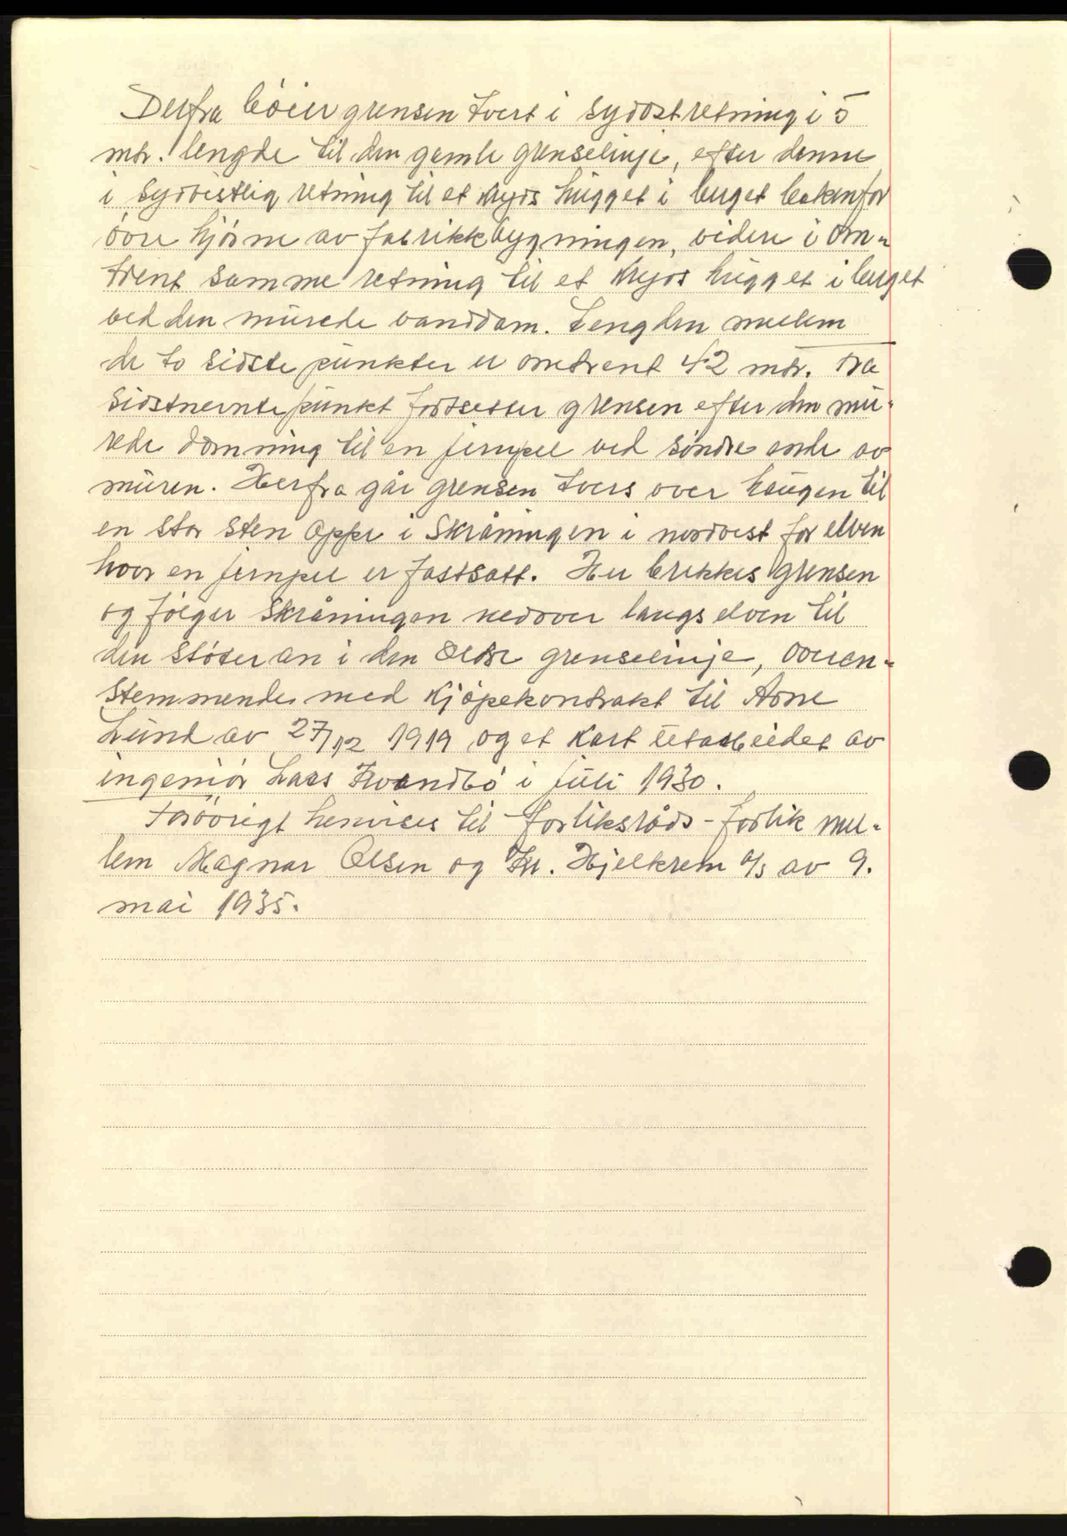 Derfra böier grensen tvert i sydostretning i 5
mtr. lengde til den gamle grenselinje, efter denne
i sydvestlig retning til et kryds hugget i berget bakenfor
övre hjörne av fabrikkbygningen, videre i om-
trent samme retning til et kryds hugget i berget
ved den murede vanddam. Lengden mellem
de to sidste punkter er omtrent 42 mtr. Fra
sidstnevnte punkt fortsetter grensen efter den mu-
rede damning til en jernpel ved söndre ende av
muren. Herfra går grensen tvers over haugen til
en stor sten oppe i skråningen i nordvest for elven
hvor en jernpel er fastsatt. Her brekkes grensen
og fölger skråningen nedover langs elven til
den stöter an i den eldre grenselinje, overen-
stemmende med kjöpekontrakt til Arne
Lund av 27/12 1919 og et kart utarbeidet av
ingeniör Lars Kvandbö i juli 1930.
Forövrigt henvises til forliksråds-forlik mel-
lem Magnar Olsen og Kr. Hjelkrem a/s av 9.
mai 1935.